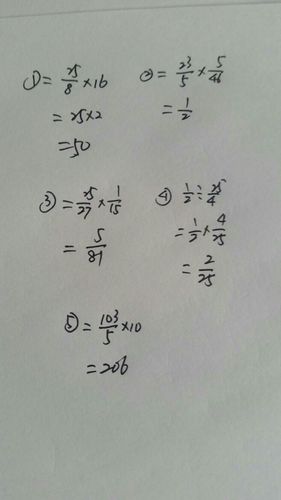 ① = 25/8 × 16
= 25 × 2
= 50
② = 23/5 × 5/46
= 1/2
③ = 25/27 × 1/15
= 5/81
④ 1/2 ÷ 25/4
= 1/2 × 4/25
= 2/25
⑤ = 103/5 × 10
= 206